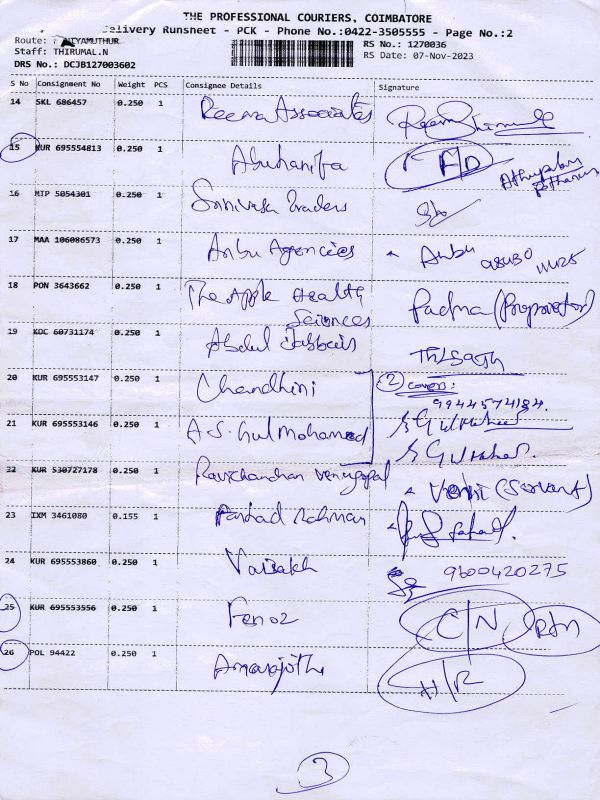 THE PROFESSIONAL COURIERS, COIMBATORE
Delivery Runsheet - PCK - Phone No.:0422-3505555 - Page No.:2
Route:
Staff: THIRUMAL.N
RS No.: 1270036
RS Date: 07-Nov-2023
DRS No.: DCJB127003602
S No Consignment No Weight PCS Consignee Details Signature
14 SKL 686457 0.250 1 Reema Associates
15 KUR 695554813 0.250 1 Abuhanifa
16 MTP 5054301 0.250 1 Srinivasa Traders
17 MAA 106086573 0.250 1 Anbu Agencies Anbu
18 PON 3643662 0.250 1 The Apple Health Sciences Padma (Proprietor)
19 KOC 60731174 0.250 1 Abdul Jabbar
20 KUR 695553147 0.250 1 Chandhini 2 covers:
9944574184.
21 KUR 695553146 0.250 1 A.S. Gul Mohamed
22 KUR 530727178 0.250 1 Ravichandran Venugopal (Servant)
23 IXM 3461080 0.155 1 Rahman
24 KUR 695553860 0.250 1 Vaisakh 9600420275
25 KUR 695553556 0.250 1 Fenoz C/N
26 POL 94422 0.250 1 Amarajothi H/R
3